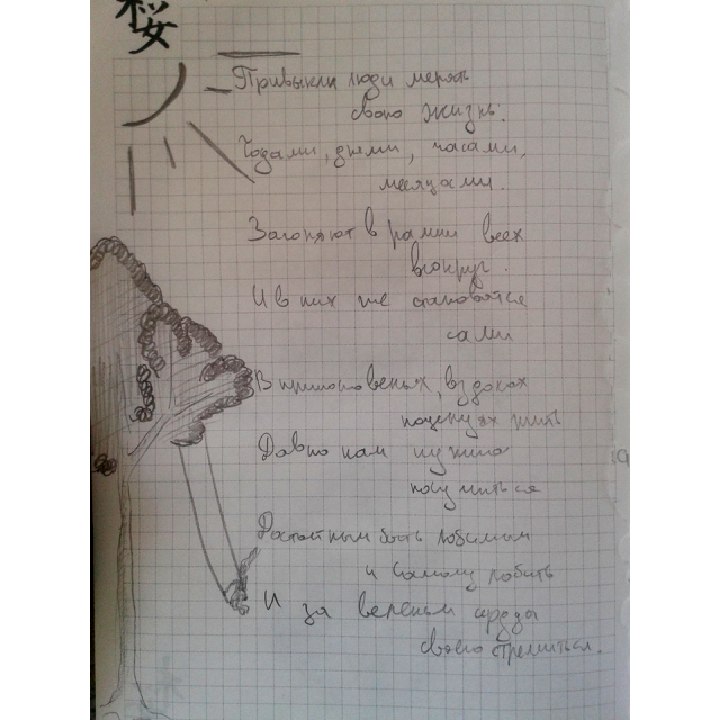 桜
Привыкли люди мерять
свою жизнь:
Годами, днями, часами,
месяцами.
Загоняют в рамки всех
вокруг.
И в них же становятся
сами
В прикосновеньях, вздохах
поцелуях жить
Давно нам нужно
научиться
Достойным быть любимым
и самому любить
И за веленьем сердца
своего стремиться.